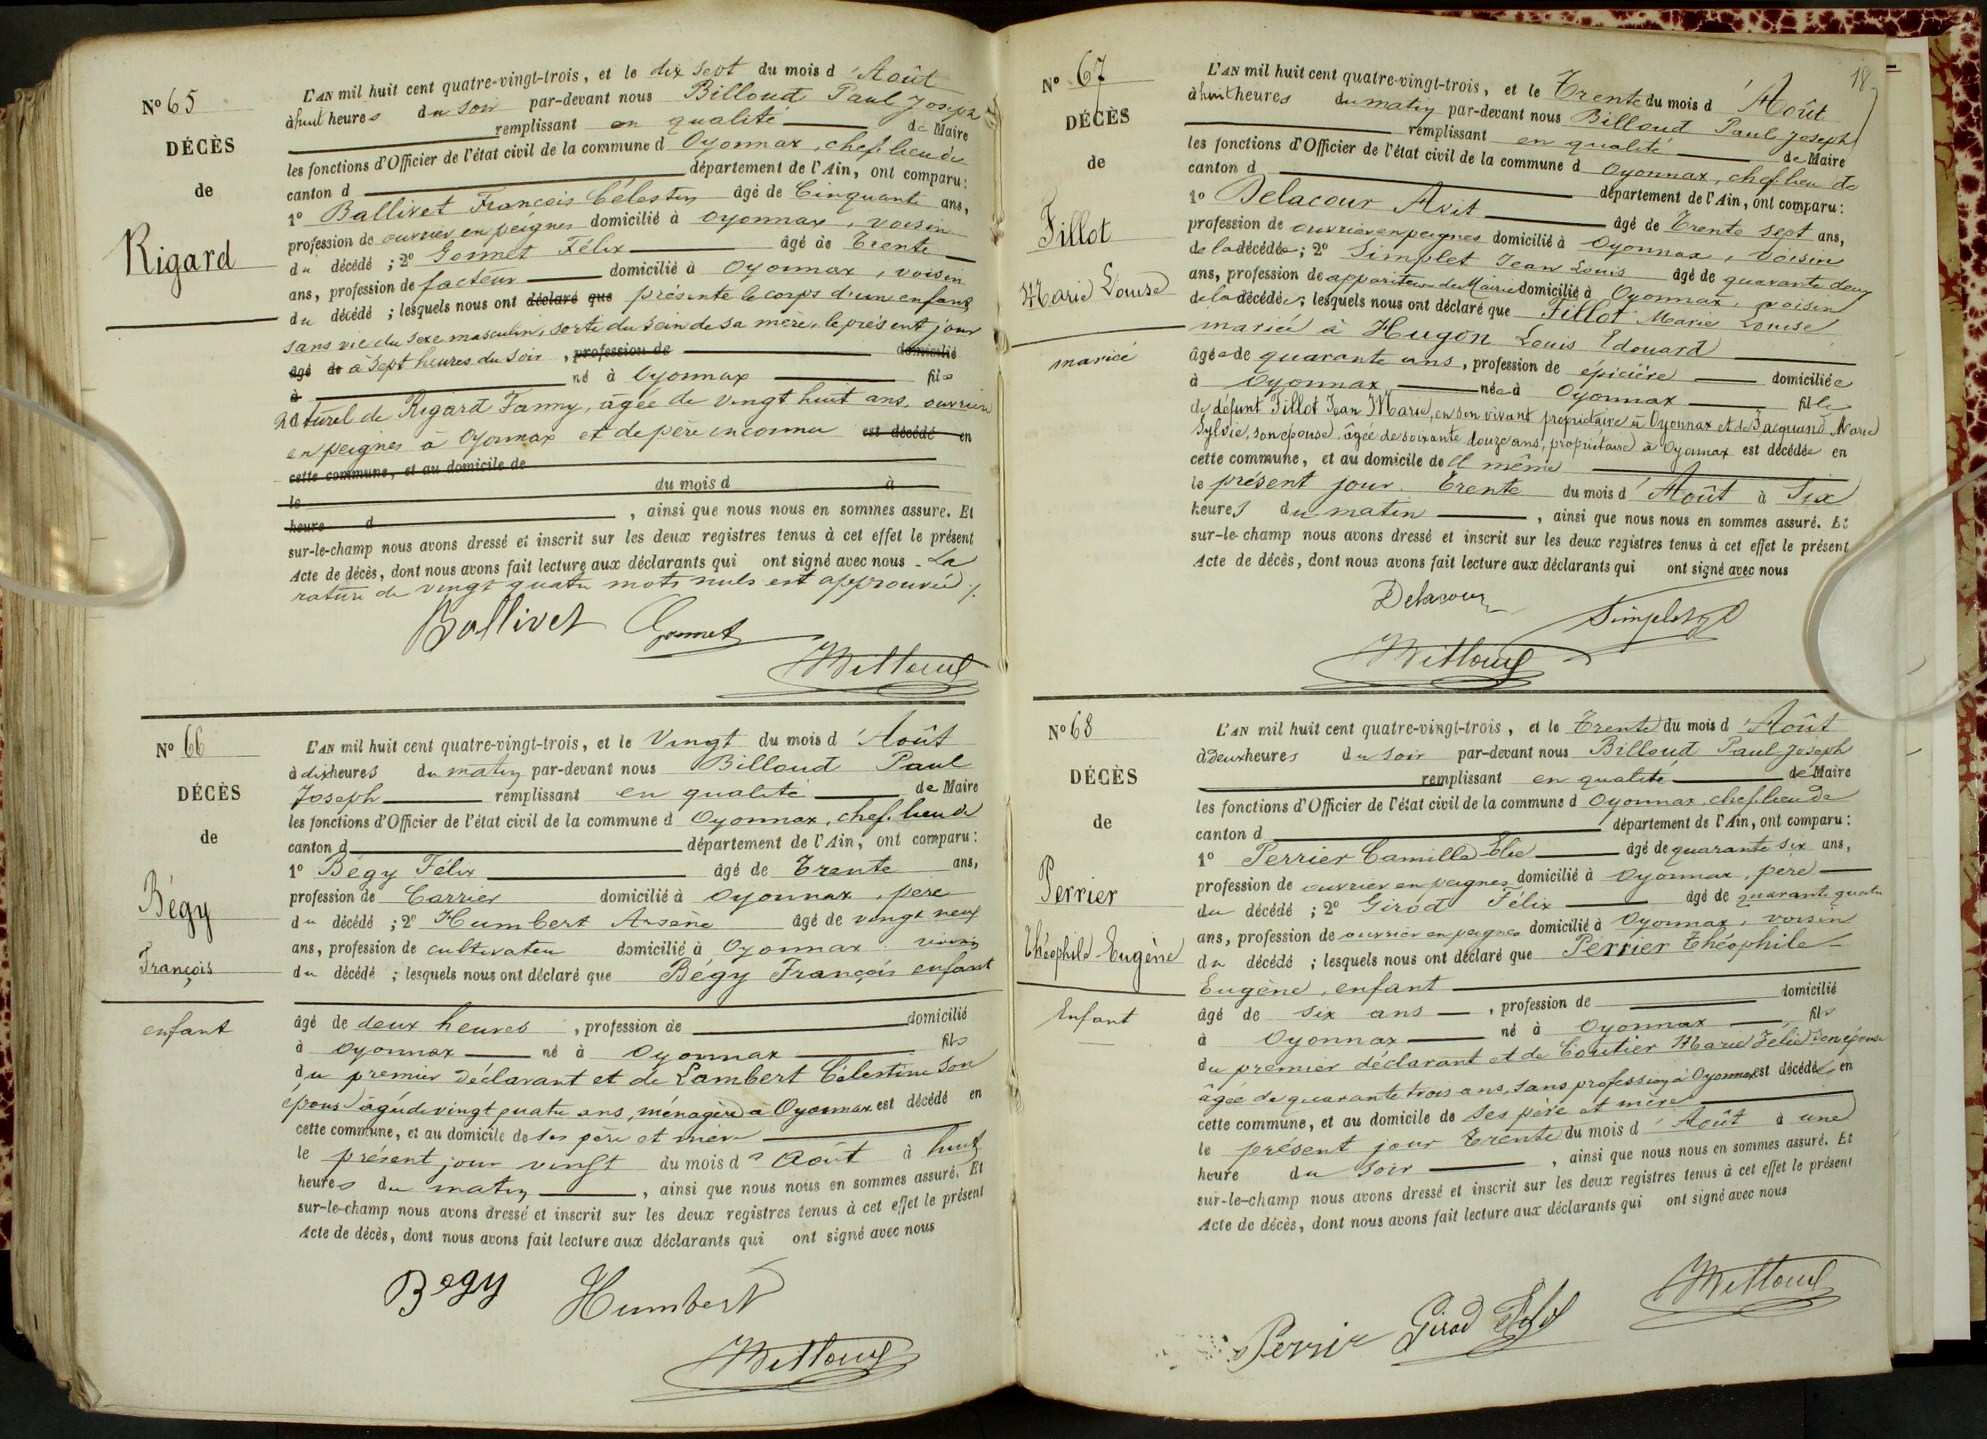 N° 65
DÉCÈS
de
Rigard
L'AN mil huit cent quatre-vingt-trois, et le dix sept du mois d'Août
à huit heures du soir par-devant nous Billoud Paul Joseph
remplissant en qualité de Maire
les fonctions d'Officier de l'état civil de la commune d Oyonnax, chef lieu de
canton d département de l'Ain, ont comparu:
1° Ballivet François Célestin âgé de Cinquante ans,
profession de ouvrier en peignes domicilié à Oyonnax, voisin
du décédé; 2° Gonnet Félix âgé de Trente
ans, profession de facteur domicilié à Oyonnax, voisin
du décédé; lesquels nous ont déclaré que présenté le corps d'un enfant
sans vie du sexe masculin, sorti du sein de sa mère, le présent jour
âgé de à sept heures du soir, profession de domicilié
à né à Oyonnax fils
naturel de Rigard Fanny, âgée de vingt huit ans, ouvrière
en peignes à Oyonnax et de père inconnu est décédé en
cette commune, et au domicile de
le du mois d à
heure d, ainsi que nous nous en sommes assuré. Et
sur-le-champ nous avons dressé et inscrit sur les deux registres tenus à cet effet le présent
Acte de décès, dont nous avons fait lecture aux déclarants qui ont signé avec nous - La
rature de vingt quatre mots nuls est approuvée ./.
Ballivet Gonnet
Billoud
N° 66
DÉCÈS
de
Bégy
François
enfant
L'AN mil huit cent quatre-vingt-trois, et le Vingt du mois d'Août
à dix heures du matin par-devant nous Billoud Paul
Joseph remplissant en qualité de Maire
les fonctions d'Officier de l'état civil de la commune d Oyonnax, chef lieu de
canton d département de l'Ain, ont comparu:
1° Bégy Félix âgé de Trente ans,
profession de Carrier domicilié à Oyonnax, père
du décédé; 2° Humbert Arsène âgé de vingt neuf
ans, profession de cultivateur domicilié à Oyonnax voisin
du décédé; lesquels nous ont déclaré que Bégy François enfant
âgé de deux heures, profession de domicilié
à Oyonnax né à Oyonnax fils
du premier déclarant et de Lambert Célestine son
épouse âgée de vingt quatre ans, ménagère à Oyonnax est décédé en
cette commune, et au domicile de ses père et mère
le présent jour vingt du mois d'Août à huit
heures du matin, ainsi que nous nous en sommes assuré. Et
sur-le-champ nous avons dressé et inscrit sur les deux registres tenus à cet effet le présent
Acte de décès, dont nous avons fait lecture aux déclarants qui ont signé avec nous
Begy Humbert
Billoud
18
N° 67
DÉCÈS
de
Fillot
Marie Louise
mariée
L'AN mil huit cent quatre-vingt-trois, et le Trente du mois d'Août
à huit heures du matin par-devant nous Billoud Paul Joseph
remplissant en qualité de Maire
les fonctions d'Officier de l'état civil de la commune d Oyonnax, chef lieu de
canton d département de l'Ain, ont comparu:
1° Delacour Avit âgé de Trente sept ans,
profession de ouvrier en peignes domicilié à Oyonnax, voisin
de la décédée; 2° Simplet Jean Louis âgé de quarante deux
ans, profession de appariteur de Mairie domicilié à Oyonnax, voisin
de la décédée; lesquels nous ont déclaré que Fillot Marie Louise
mariée à Hugon Louis Edouard
âgée de quarante ans, profession de épicière domiciliée
à Oyonnax née à Oyonnax fille
de défunt Fillot Jean Marie, en son vivant propriétaire à Oyonnax et de Jacquand Marie
Sylvie, son épouse, âgée de soixante douze ans, propriétaire à Oyonnax est décédée en
cette commune, et au domicile de elle même
le présent jour Trente du mois d'Août à Six
heures du matin, ainsi que nous nous en sommes assuré. Et
sur-le-champ nous avons dressé et inscrit sur les deux registres tenus à cet effet le présent
Acte de décès, dont nous avons fait lecture aux déclarants qui ont signé avec nous
Delacour Simplet
Billoud
N° 68
DÉCÈS
de
Perrier
Théophile Eugène
Enfant
L'AN mil huit cent quatre-vingt-trois, et le Trente du mois d'Août
à deux heures du soir par-devant nous Billoud Paul Joseph
remplissant en qualité de Maire
les fonctions d'Officier de l'état civil de la commune d Oyonnax, chef lieu de
canton d département de l'Ain, ont comparu:
1° Perrier Camille Elie âgé de quarante six ans,
profession de ouvrier en peignes domicilié à Oyonnax, père
du décédé; 2° Girod Félix âgé de quarante quatre
ans, profession de ouvrier en peignes domicilié à Oyonnax, voisin
du décédé; lesquels nous ont déclaré que Perrier Théophile
Eugène, enfant
âgé de six ans, profession de domicilié
à Oyonnax né à Oyonnax fils
du premier déclarant et de Coutier Marie Zélie son épouse
âgée de quarante trois ans, sans profession à Oyonnax est décédé en
cette commune, et au domicile de ses père et mère
le présent jour Trente du mois d'Août à une
heure du soir, ainsi que nous nous en sommes assuré. Et
sur-le-champ nous avons dressé et inscrit sur les deux registres tenus à cet effet le présent
Acte de décès, dont nous avons fait lecture aux déclarants qui ont signé avec nous
Billoud
Perrier Girod Félix